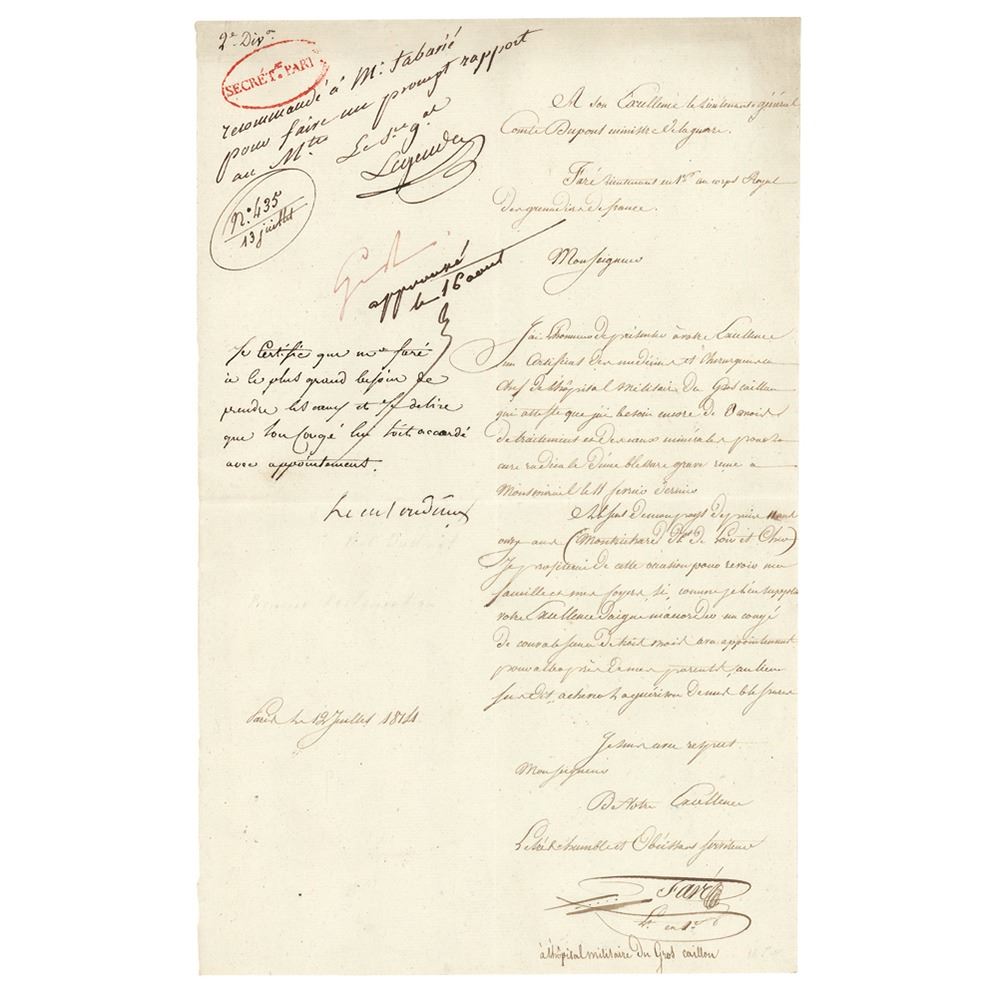 2e Divon
SECRÉT. PARI
recommandé à Mr. Tabarié
pour faire un prompt rapport
au Mtre
Le Sre gal
Legendre
No. 435
13 juillet
approuvé
le 16 aout
Je Certifie que mr faré
à le plus grand besoin de
prendre les eaux et Je desire
que Son Congé luy soit accordé
avec appointement.
Paris Le 13 Juillet 1814
A Son Excellence le Lieutenant général
Comte Dupont ministre de la guerre.
Faré Lieutenant en 1er au corps Royal
des grenadiers de france.
Monseigneur
J'ai L'honneur de présenter à votre Excellence
un Certificat des médecins et Chirurgiens
Chefs de L'hôpital Militaire du Gros caillou
qui atteste que j'ai besoin encore de 3 mois
de traitement et des eaux minérales pour la
cure radicale d'une blessure grave reçue à
Montmirail le 11 fevrier dernier
Absent de mon pays depuis
onze ans (Montrichard Dt. de Loir et Cher)
Je profiterai de cette occasion pour revoir ma
famille et mes foyers, si, comme je l'en supplie
votre Excellence daigne m'accorder un congé
de convalescence de trois mois avec appointement
pour aller près de mes parents, au lieu
sus dit, achever La guérison de mes blessures
Je suis avec respect
Monseigneur
De Votre Excellence
Le très humble et Obéissant serviteur
Faré
Lt. en 1er
à l'hôpital militaire du Gros caillou